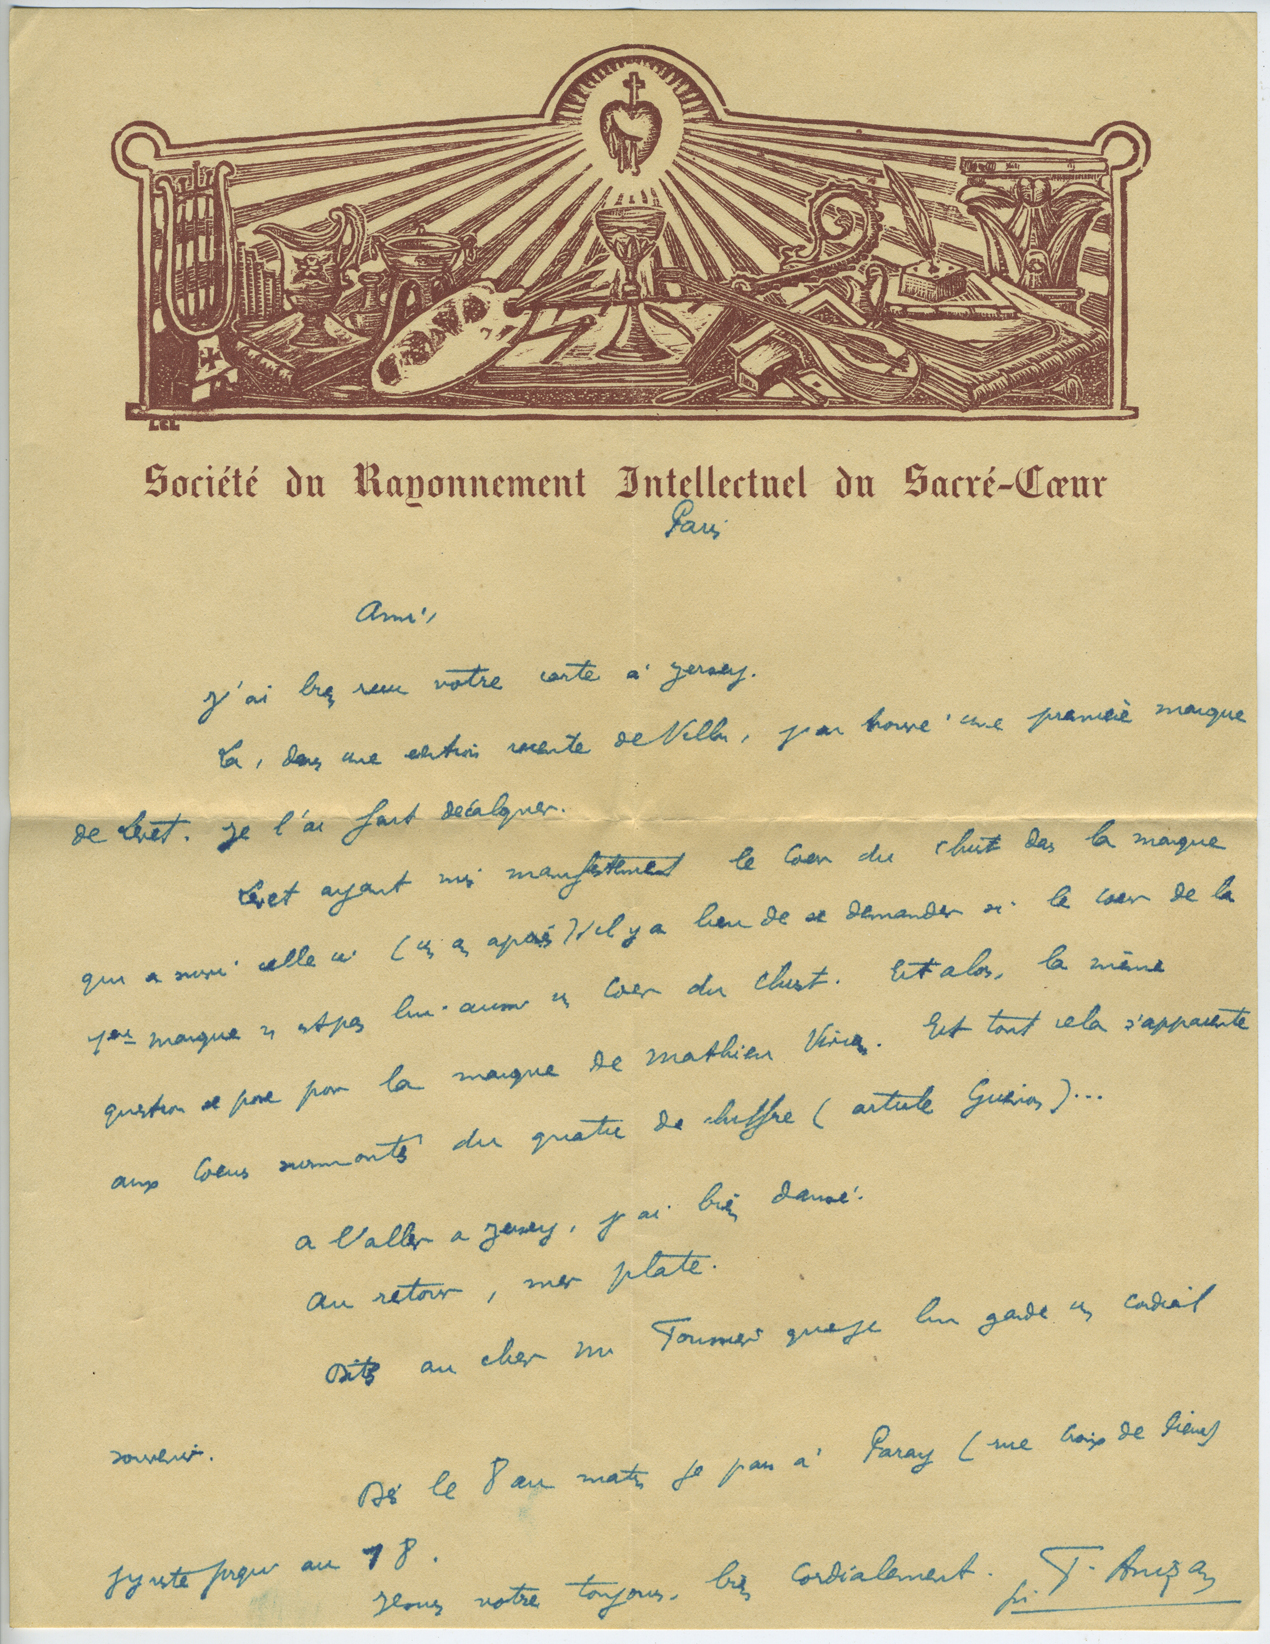 LCL
Société du Rayonnement Intellectuel du Sacré-Cœur
Paris
Ami,
J'ai bien reçu votre carte à Jersey.
Là, dans une édition récente de Villon, j'ai trouvé une première marque
de Levet. Je l'ai fait décalquer.
Levet ayant mis manifestement le Coeur du Christ dans la marque
qui a suivi celle ci (un an après) il y a lieu de se demander si le coeur de la
1ère marque n'est pas lui-aussi un Coeur du Christ. Et alors, la même
question se pose pour la marque de Mathieu Vivian. Et tout cela s'apparente
aux Coeurs surmontés du quatre de chiffre (article Guénon)...
A l'aller a Jersey, j'ai bien dansé.
Au retour, mer plate.
Dites au cher Mr que je lui garde un cordial
souvenir.
Dès le 8 au matin je pars à Paray (rue Croix de Pierre)
J'y reste jusqu'au 18.
votre toujours, bien cordialement. F. Anizan